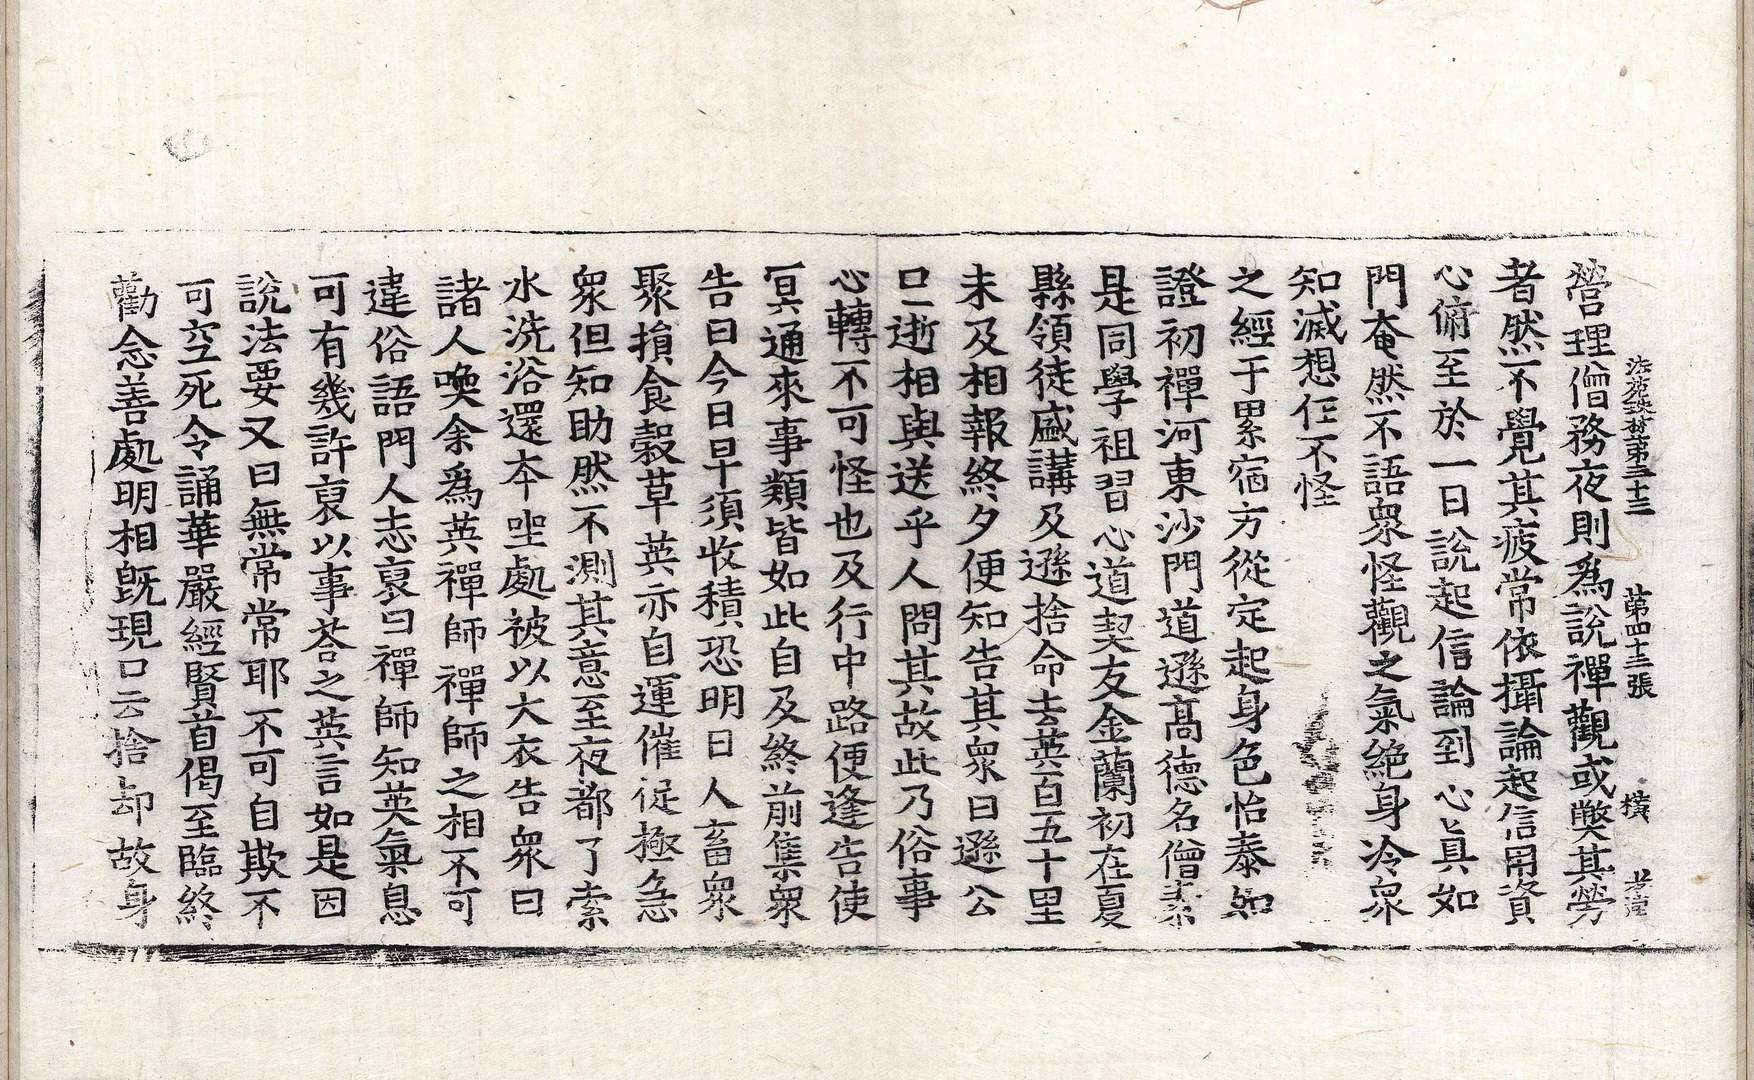 法苑珠林第三十三 第四十三張 橫
營理僧務夜則爲說禪觀或獘其勞
者然不覺其疲常依攝論起信用資
心俯至於一日說起信論到心真如
門奄然不語衆怪觀之氣絶身冷衆
知滅想任不怪
之經于累宿方從定起身色怡泰如
證初禪河東沙門道遜高德名僧素
是同學祖習心道契友金蘭初在夏
縣領徒盛講及遜捨命去英百五十里
未及相報終夕便知告其衆曰遜公
已逝相與送乎人問其故此乃俗事
心轉不可怪也及行中路便逢告使
冥通來事類皆如此自及終前集衆
告曰今日早須收積恐明日人畜衆
聚損食穀草英亦自運催促極急
衆但知助然不測其意至夜都了索
水洗浴還本坐處被以大衣告衆曰
諸人喚余爲英禪師禪師之相不可
違俗語門人志衷曰禪師知英氣息
可有幾許衷以事荅之英言如是因
說法要又曰無常常耶不可自欺不
可空死令誦華嚴經賢首偈至臨終
勸念善處明相旣現口云捨却故身